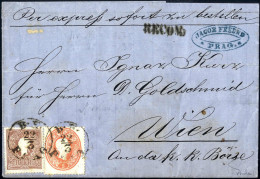 Per express sofort zu bestellen
RECOM
JACOB FEIGL
PRAG.
Herrn Ignaz Kurz
für Herrn D. Goldschmid
Wien
An da k. k. Börse